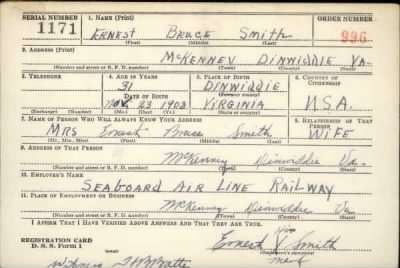 SERIAL NUMBER 1. NAME (Print) ORDER NUMBER
1171 ERNEST BRUCE SMITH 996
(First) (Middle) (Last)
2. ADDRESS (Print)
McKENNEY DINWIDDIE VA.
(Number and street or R. F. D. number) (Town) (County) (State)
3. TELEPHONE 4. AGE IN YEARS 5. PLACE OF BIRTH 6. COUNTRY OF CITIZENSHIP
31 DINWIDDIE
DATE OF BIRTH (Town or county)
NOV. 23 1908 VIRGINIA U.S.A.
(Exchange) (Number) (Mo.) (Day) (Yr.) (State or country)
7. NAME OF PERSON WHO WILL ALWAYS KNOW YOUR ADDRESS 8. RELATIONSHIP OF THAT PERSON
MRS Ernest Bruce Smith WIFE
(Mr., Mrs., Miss) (First) (Middle) (Last)
9. ADDRESS OF THAT PERSON
McKenney Dinwiddie Va.
(Number and street or R. F. D. number) (Town) (County) (State)
10. EMPLOYER'S NAME
SEABOARD AIR LINE RAILWAY
11. PLACE OF EMPLOYMENT OR BUSINESS
McKenney Dinwiddie Va
(Number and street or R. F. D. number) (Town) (County) (State)
I AFFIRM THAT I HAVE VERIFIED ABOVE ANSWERS AND THAT THEY ARE TRUE.
REGISTRATION CARD
D. S. S. Form 1
his
Ernest X Smith
mark
(Registrant's signature)
Witness